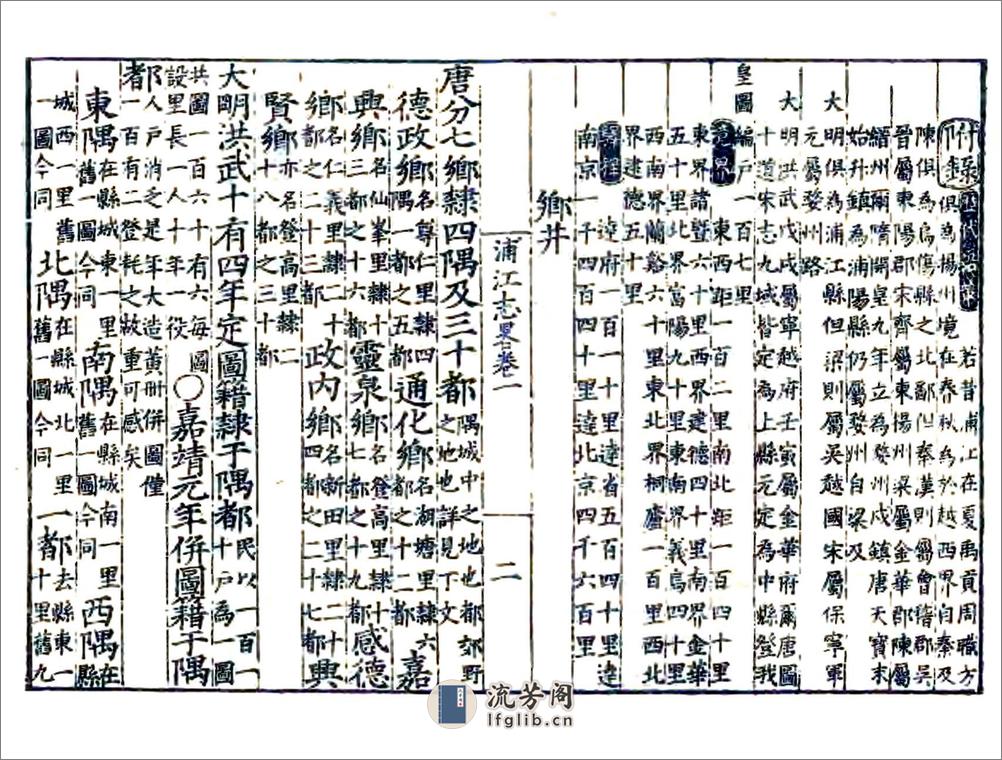 若昔浦江在夏禹貢周職方
俱為揚州境在春秋為於越西界自秦及
陳俱為烏傷縣之北鄙但秦漢則屬會稽郡吳
晉屬東陽郡宋齊屬東揚州梁屬金華郡陳屬
縉州爾隋開皇九年立為婺州戍鎮唐天寶末
始升鎮為浦陽縣仍屬婺州自梁及
元屬婺州路
大明俱為浦江縣但梁則屬吳越國宋屬保寧軍
大明洪武戊戌屬寧越府壬寅屬金華府爾唐圖
十道宋志九域皆定為上縣元定為中縣登我
皇圖編戶一百七里
界 東西距一百二里南北距一百四十里
東界諸暨六十里西界建德四十里南界金華
五十里北界富陽九十里東南界義烏四十里
西南界蘭谿六十里東北界桐廬一百里西北
界建德五十里
達府一百一十里達省五百四十里達
南京一千四百四十里達北京四千六百里
鄉井
浦江志畧卷一 二
唐分七鄉隸四隅及三十都隅城中之地也都郊野之地也詳見下文
德政鄉名尊仁里隸四隅一都之五都通化鄉名湖塘里隸六都之十二都嘉
興鄉名仙峯里隸十三都之十六都靈泉鄉名登高里隸十七都之十九都感德
鄉名仁義里隸二十都之二十三都政內鄉名新田里隸二十四都之二十七都興
賢鄉亦名登高里隸二十八都之三十都
大明洪武十有四年定圖籍隸于隅都民以一百一十戶為一圖
共圖一百六十有六每圖設里長一人十年一役○嘉靖元年併圖籍于隅
都人戶消乏是年大造黃冊併圖僅一百有二登耗之故重可感矣
東隅在縣城東一里舊一圖今同南隅在縣城南一里舊一圖今同西隅在縣
城西一里舊一圖今同北隅在縣城北一里舊一圖今同一都去縣東一十里舊九
流芳阁
lfglib.cn